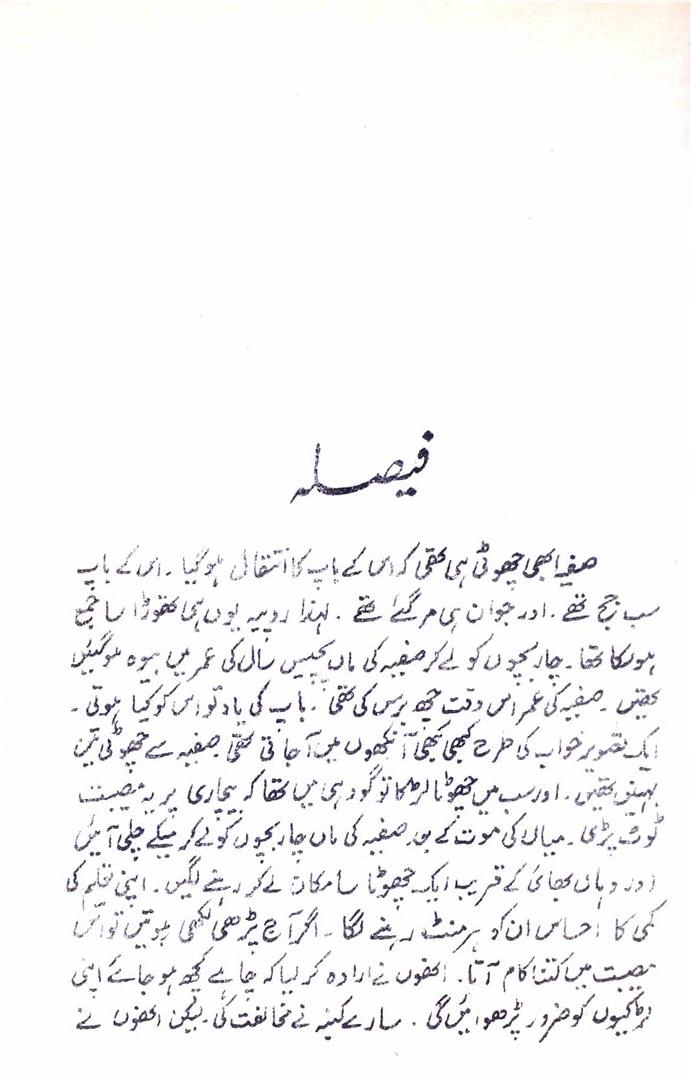 فیصلہ
صفیہ ابھی چھوٹی ہی تھی کہ اس کے باپ کا انتقال ہو گیا ۔ اس کے باپ
سب جج تھے ۔ اور جوان ہی مر گئے تھے ۔ لہذا روپیہ یوں ہی تھوڑا سا جمع
ہو سکا تھا ۔ چار بچوں کو لے کر صفیہ کی ماں پچیس سال کی عمر میں بیوہ ہو گئیں
تھیں ۔ صفیہ کی عمر اس وقت چھ برس کی تھی ۔ باپ کی یاد تو اس کو کیا ہوتی ۔
ایک تصویر خواب کی طرح کبھی کبھی آنکھوں میں آ جاتی تھی صفیہ سے چھوٹی تین
بہنیں تھیں ۔ اور سب میں چھوٹا لڑکا تو گود ہی میں تھا کہ بیچاری پر یہ مصیبت
ٹوٹ پڑی ۔ میاں کی موت کے بعد صفیہ کی ماں چار بچوں کو لے کر میکے چلی آئیں
اور وہاں بھائی کے قریب ایک چھوٹا سا مکان لے کر رہنے لگیں ۔ اپنی تعلیم کی
کمی کا احساس ان کو ہر منٹ رہنے لگا ۔ اگر آج پڑھی لکھی ہوتیں تو اس
مصیبت میں کتنا کام آتا ۔ انھوں نے ارادہ کر لیا کہ چاہے کچھ ہو جائے اپنی
لڑکیوں کو ضرور پڑھوائیں گی ۔ سارے کنبہ نے مخالفت کی ۔ لیکن انھوں نے